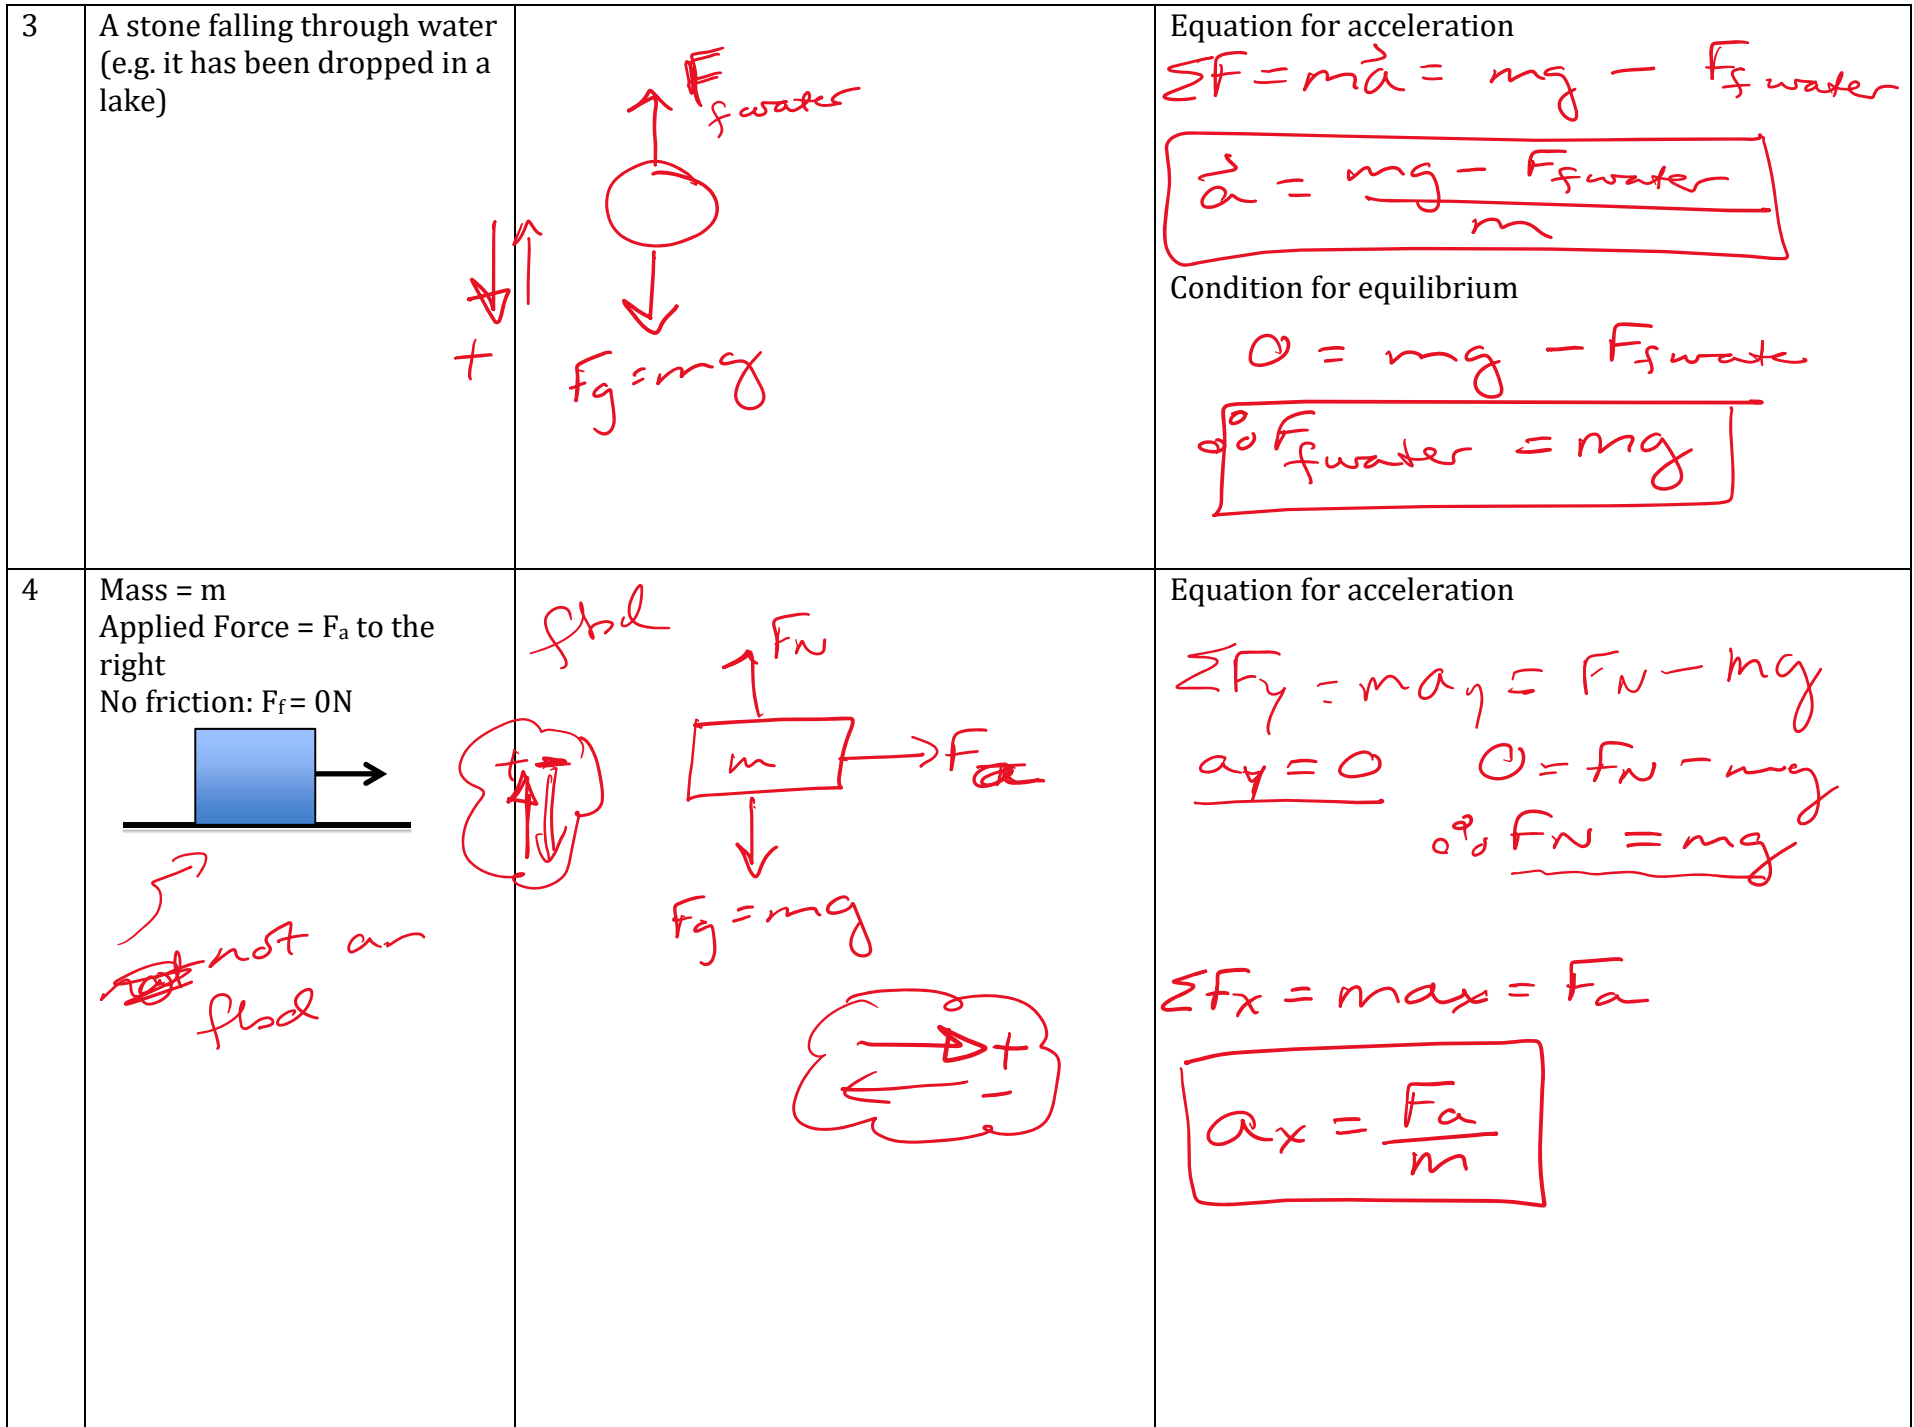 3
A stone falling through water
(e.g. it has been dropped in a
lake)
+
F f water
Fg = mg
Equation for acceleration
ΣF = ma⃗ = mg − F f water
a⃗ = mg − F f water
m
Condition for equilibrium
0 = mg − F f wate
∴ F f water = mg
4
Mass = m
Applied Force = Fₐ to the
right
No friction: F_f = 0N
not an
fbd
fbd
+ −
F_N
m
F_a
Fg = mg
+
−
Equation for acceleration
ΣFy = may = F_N − mg
ay = 0 0 = F_N − mg
∴ F_N = mg
ΣFx = max = Fa
ax = Fa
m